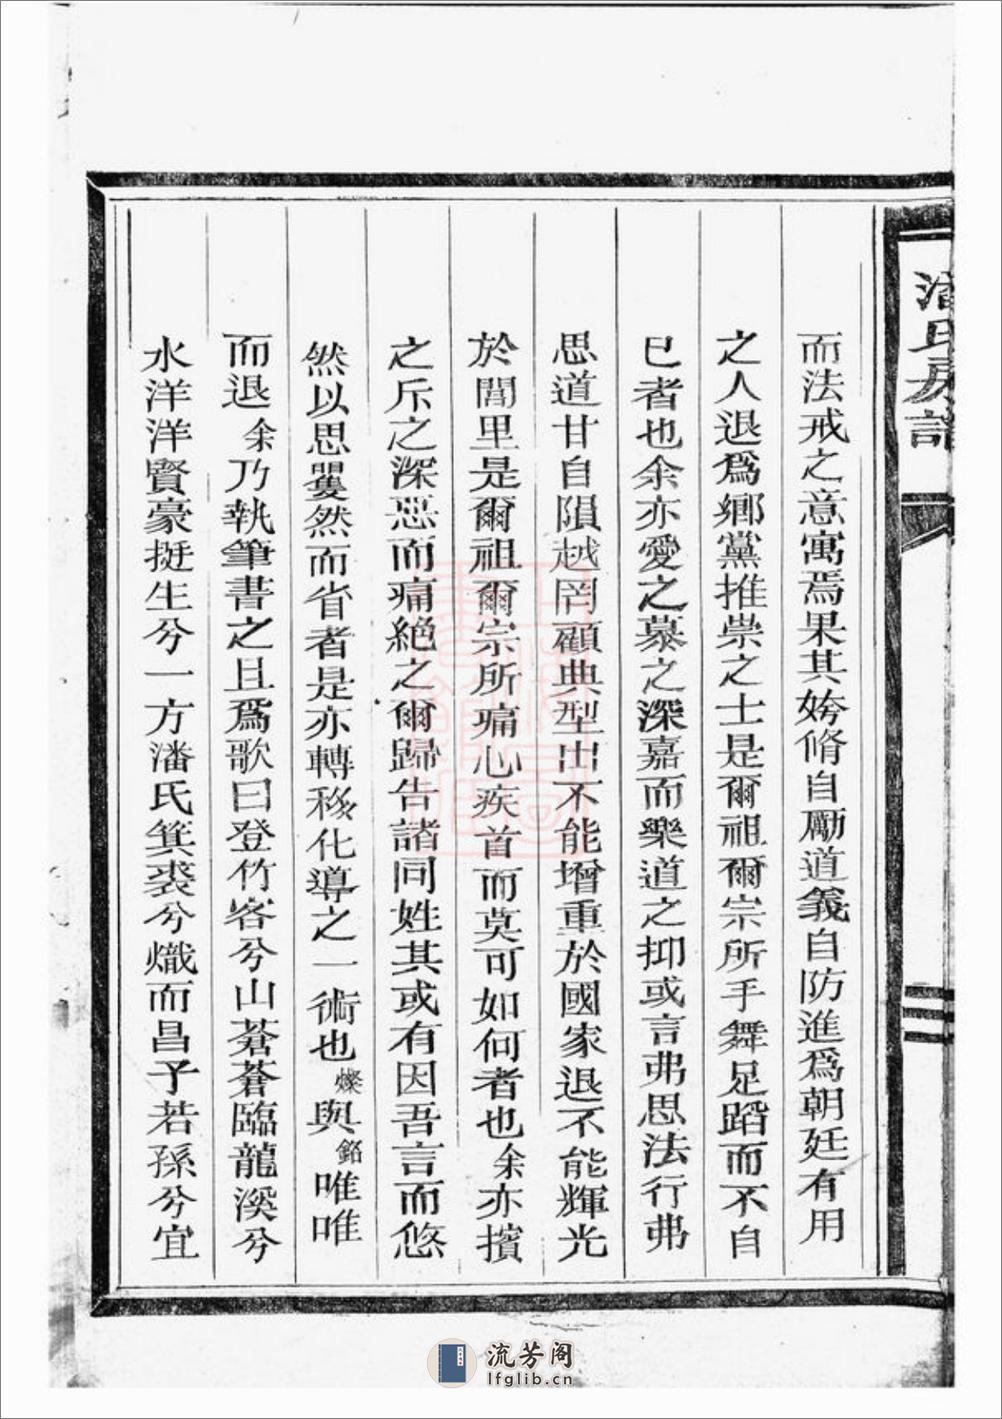 潘氏房譜
而法戒之意寓焉果其姱脩自勵道義自防進爲朝廷有用
之人退爲鄉黨推崇之士是爾祖爾宗所手舞足蹈而不自
已者也余亦愛之慕之深嘉而樂道之抑或言弗思法行弗
思道甘自隕越罔顧典型出不能增重於國家退不能輝光
於閭里是爾祖爾宗所痛心疾首而莫可如何者也余亦擯
之斥之深惡而痛絕之爾歸告諸同姓其或有因吾言而悠
然以思矍然而省者是亦轉移化導之一術也燦與銘唯唯
而退余乃執筆書之且爲歌曰登竹峉兮山蒼蒼臨龍溪兮
水洋洋賢豪挺生兮一方潘氏箕裘兮熾而昌予若孫兮宜
流芳阁
lfglib.cn